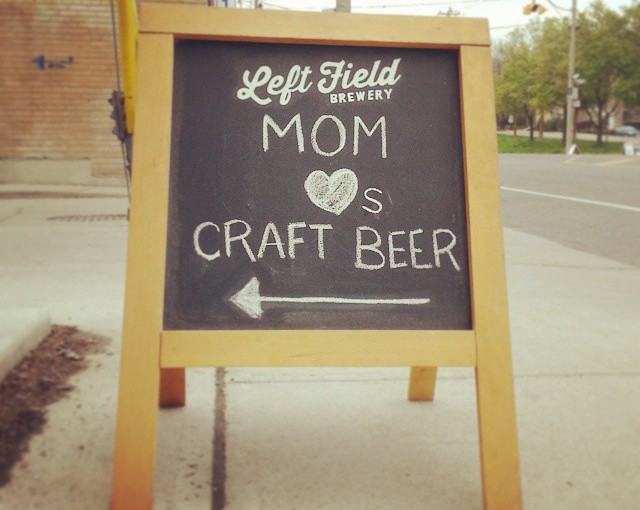 Left Field
BREWERY
MOM
♥s
CRAFT BEER